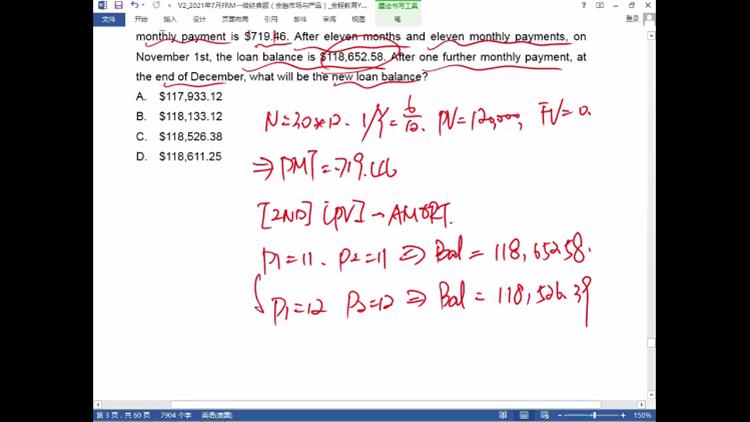 V2_2021年7月FRM一级经典题(金融市场与产品)_金程教育Y...
墨迹书写工具
文件
开始
插入
设计
页面布局
引用
邮件
审阅
视图
笔
登录
monthly payment is $719.46. After eleven months and eleven monthly payments, on
November 1st, the loan balance is $118,652.58. After one further monthly payment, at
the end of December, what will be the new loan balance?
A. $117,933.12
B. $118,133.12
C. $118,526.38
D. $118,611.25
N=30*12. I/Y=6/12. PV=120,000, FV=0.
⇒ PMT=-719.46
[2ND] [PV] → AMORT.
P1=11. P2=11 ⇒ Bal = 118,652.58.
P1=12 P2=12 ⇒ Bal = 118,526.39
第 3 页,共 60 页
7904 个字
英语(美国)
150%